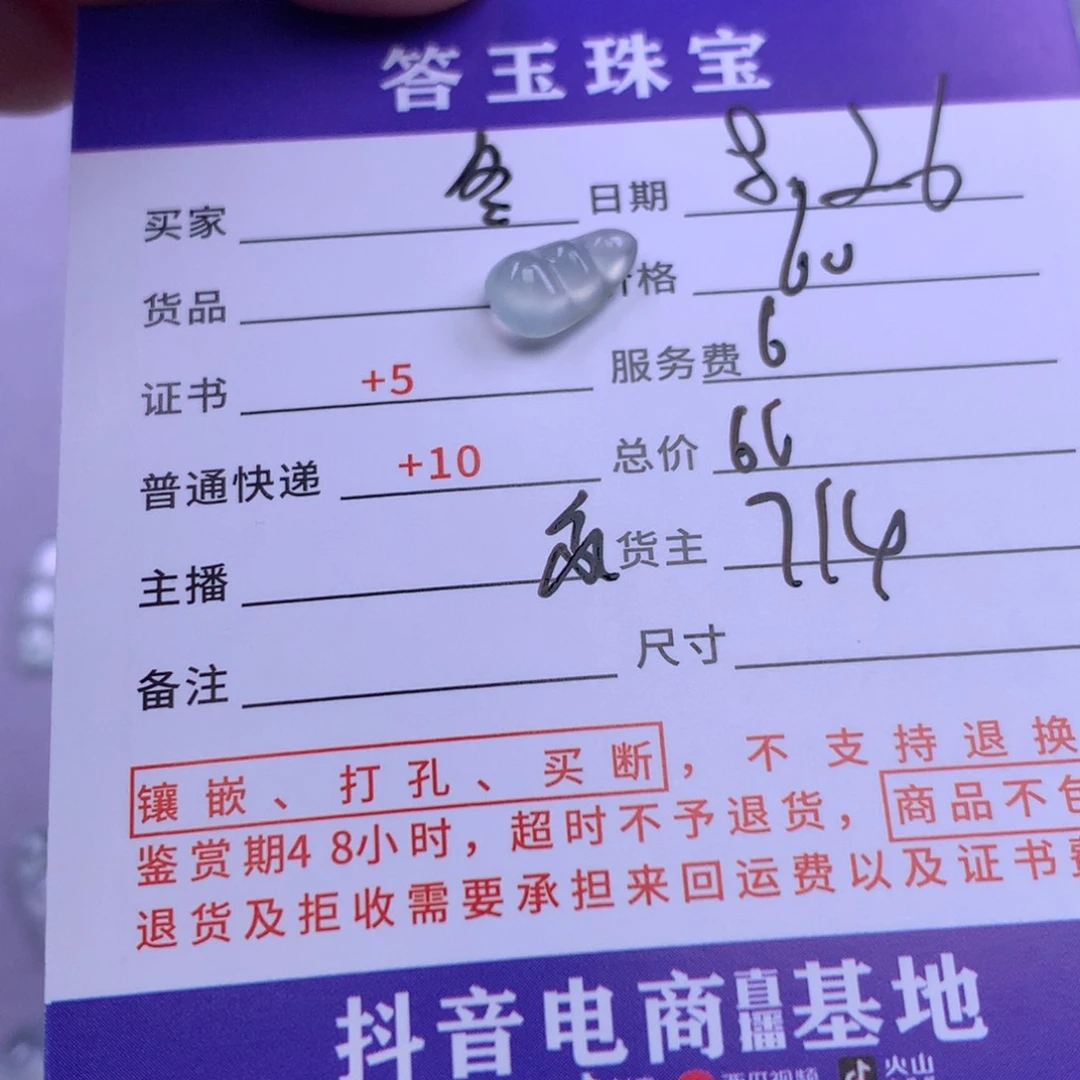 答玉珠宝
买家 冬 日期 8,26
货品 价格 60
证书 +5 服务费 6
普通快递 +10 总价 66
主播 货主 714
备注 尺寸
镶嵌、打孔、买断，不支持退换
鉴赏期48小时，超时不予退货，商品不包
退货及拒收需要承担来回运费以及证书费
抖音电商直播基地
西瓜视频 火山